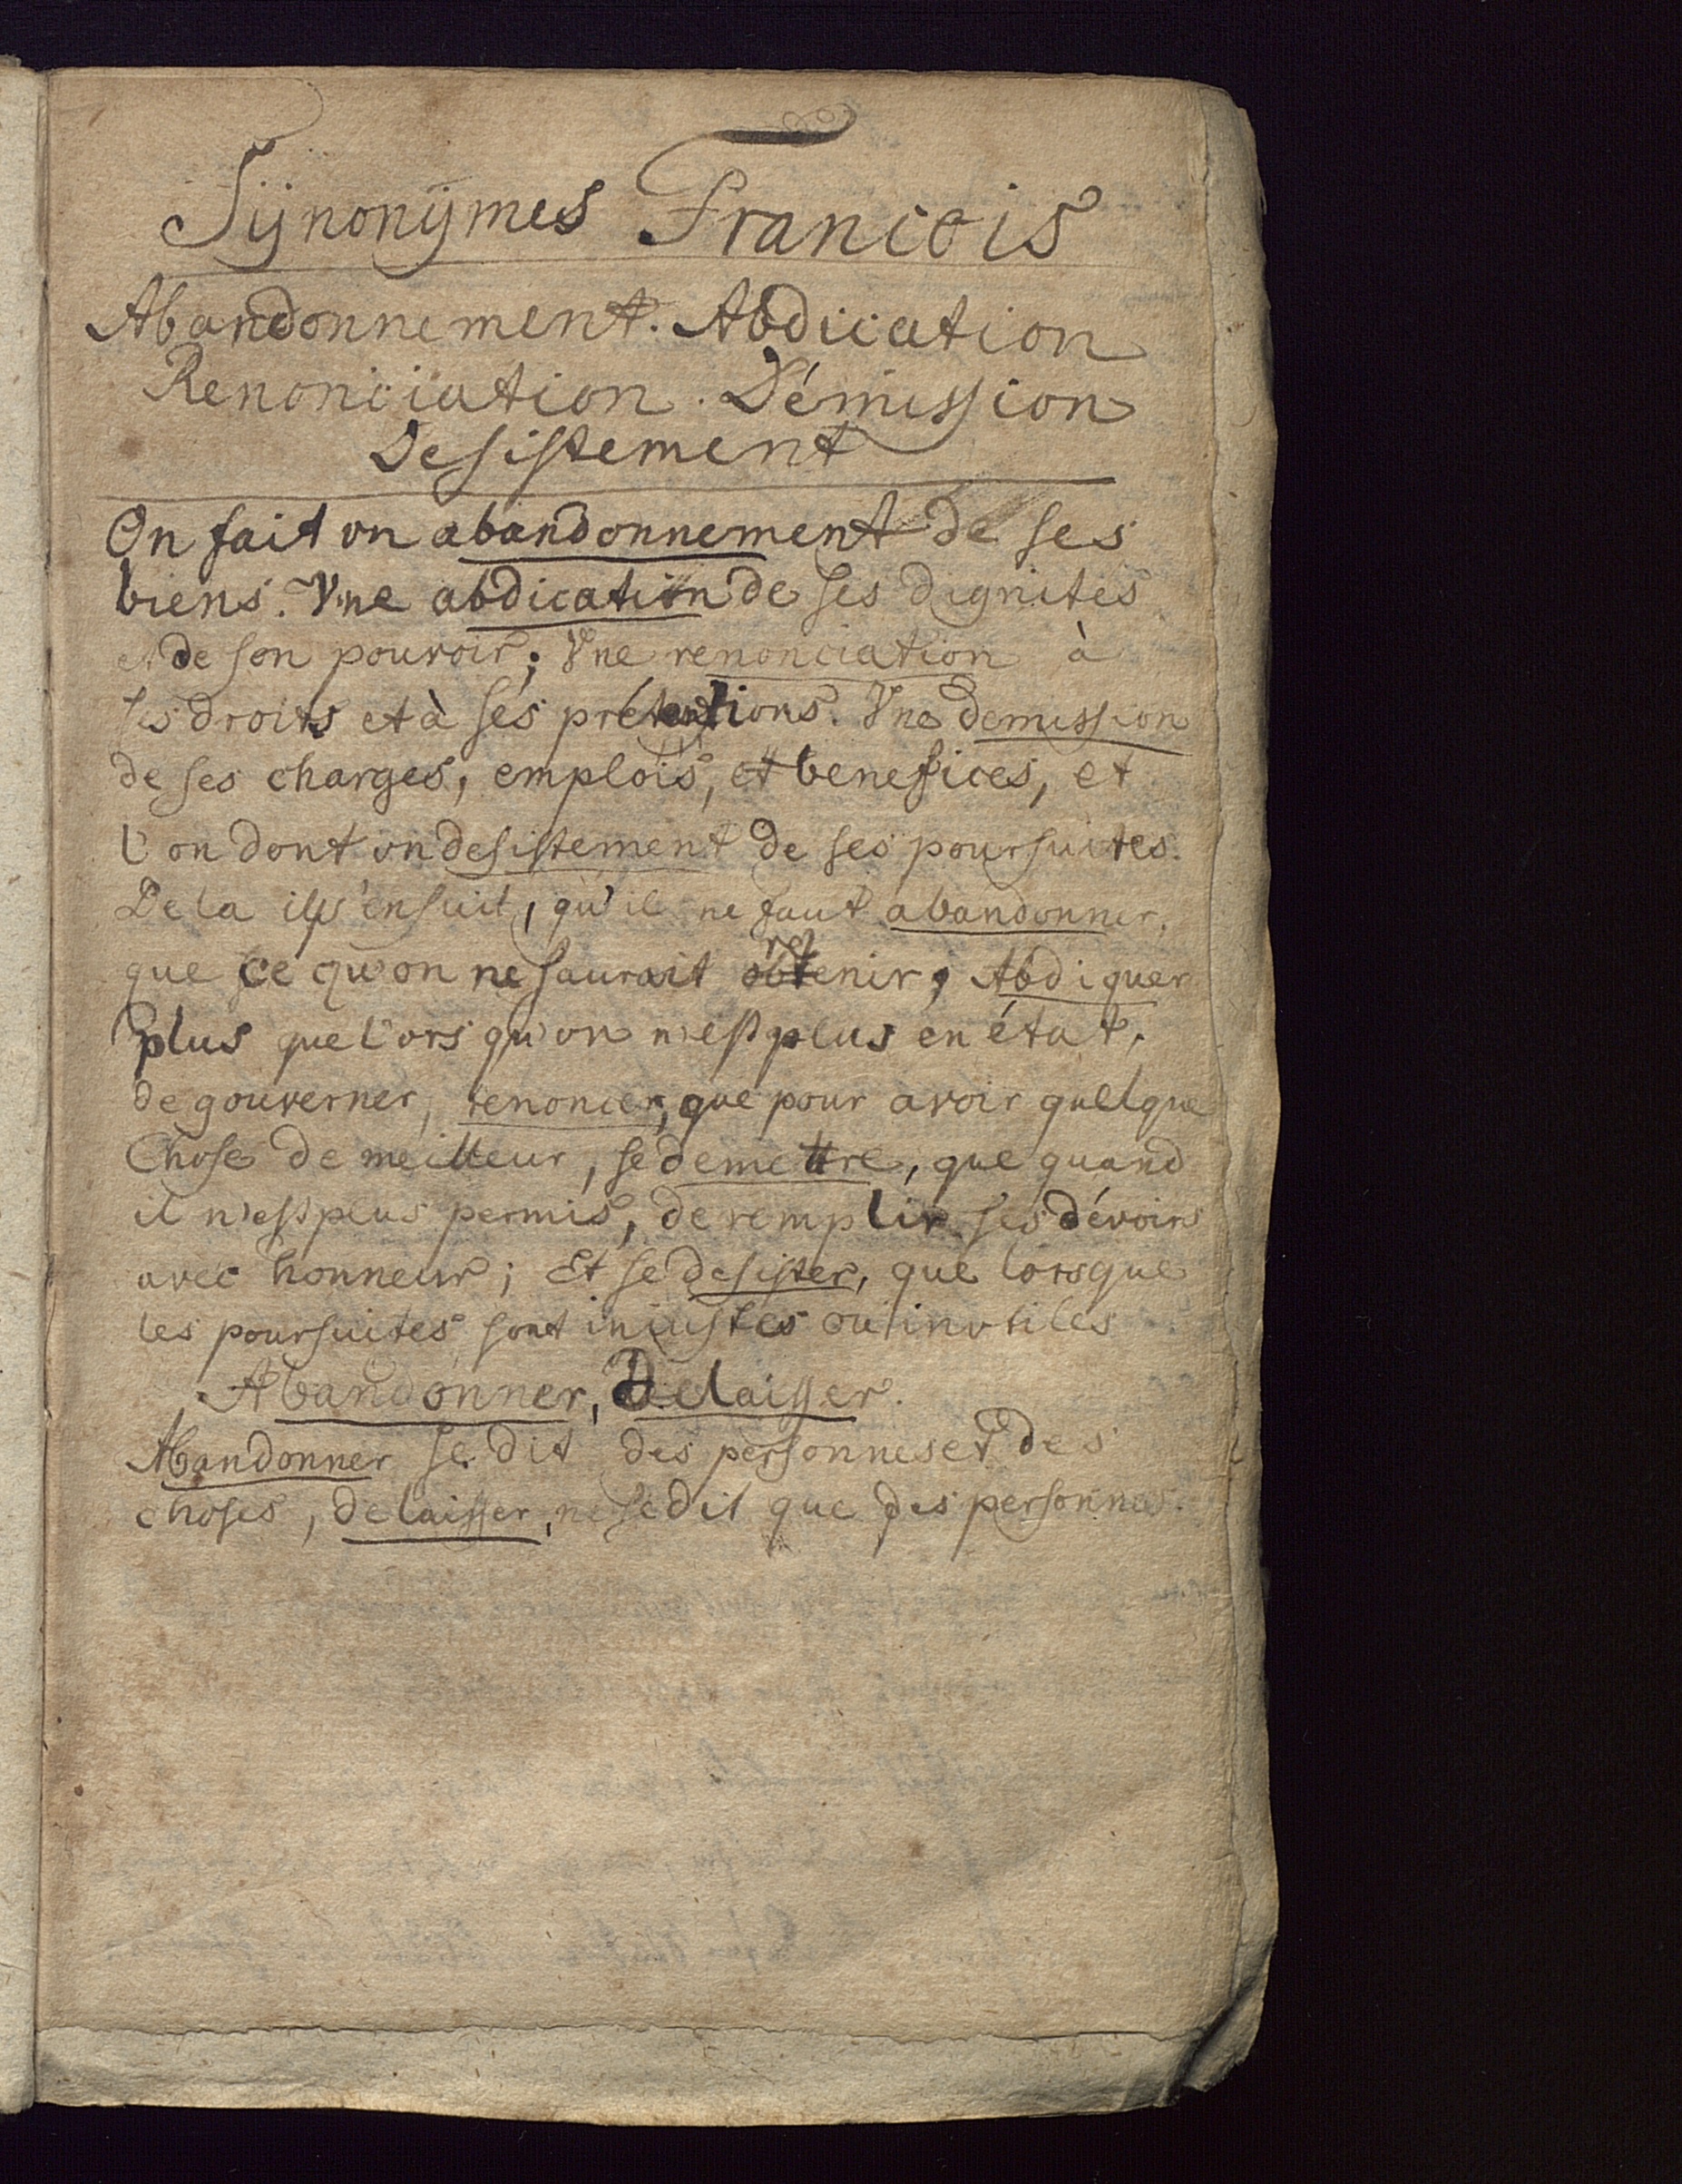 Sÿnonÿmes Francois
Abandonnement. Abdication
Renonciation. Démission
Desistement
On fait vn abandonnement de ses
biens. Vne abdication de ses dignites
et de son pouvoir; Vne renonciation à
ses droits et à sés prétentions. Vne demission
de ses charges, emplois, et benefices, et
l'on dont vn desistement de ses poursuites.
De la il s'ensuit, qu'il ne faut abandonner,
que ce qu'on ne saurait retenir; Abdiquer
plus que l'ors qu'on n'est plus en état.
de gouverner, renoncer, que pour avoir quelque
Chose de meilleur, se demettre, que quand
il n'est plus permis, de remplir ses dévoirs
avec honneur; Et se desister, que lorsque
les poursuites sont injustes ou invtiles
Abandonner, Delaisser.
Abandonner se dit des personnes et des
choses, delaisser, ne se dit que des personnes.